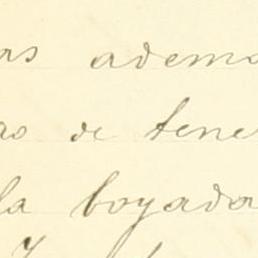 as adema
ro de tene
la boyada
Y